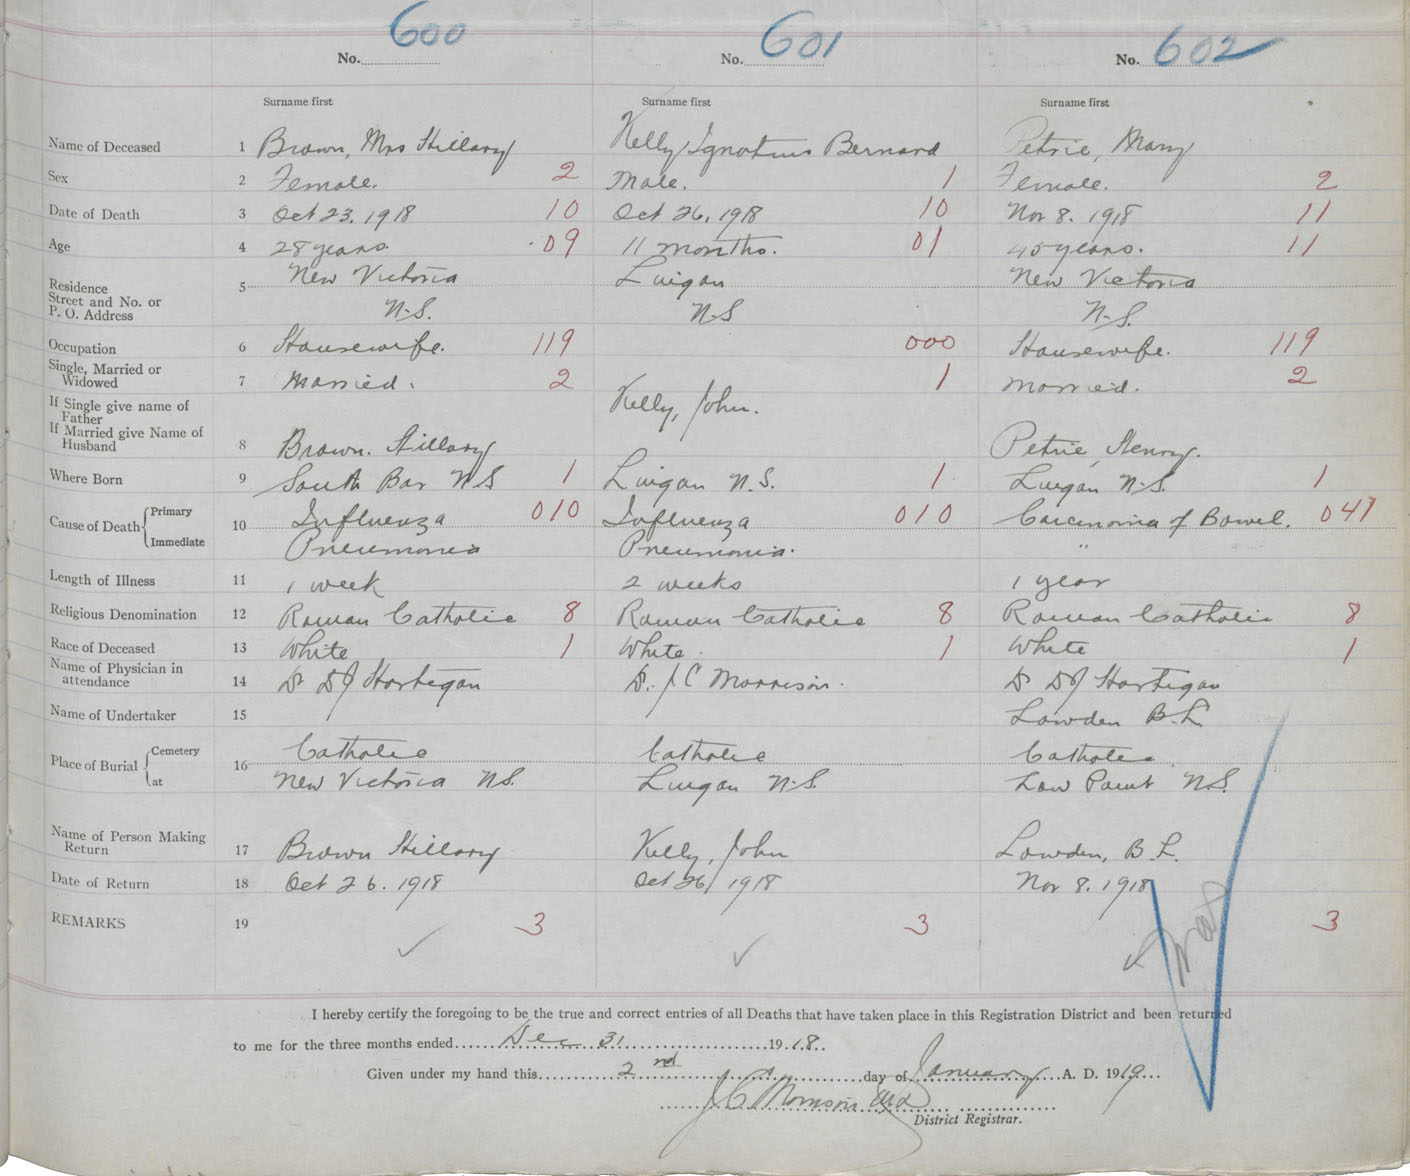 600 601 602
No. No. No.
Surname first Surname first Surname first
Name of Deceased 1 Brown, Mrs Hillary Kelly, Ignatius Bernard Petrie, Mary
Sex 2 Female. 2 Male. 1 Female. 2
Date of Death 3 Oct 23. 1918 10 Oct 26, 1918 10 Nov 8. 1918 11
Age 4 28 years. 09 11 months. 01 45 years. 11
Residence Street and No. or P. O. Address 5 New Victoria Lingan New Victoria
N.S. N.S N.S.
Occupation 6 Housewife. 119 000 Housewife. 119
Single, Married or Widowed 7 Married. 2 1 Married. 2
If Single give name of Father Kelly, John.
If Married give Name of Husband 8 Brown. Hillary Petrie, Henry.
Where Born 9 South Bar N S 1 Lingan N.S. 1 Lingan N.S. 1
Cause of Death Primary 10 Influenza 010 Influenza 010 Carcinoma of Bowel. 047
Immediate Pneumonia Pneumonia. "
Length of Illness 11 1 week 2 weeks 1 year
Religious Denomination 12 Roman Catholic 8 Roman Catholic 8 Roman Catholic 8
Race of Deceased 13 White 1 White. 1 White 1
Name of Physician in attendance 14 Dr DJ Hartigan Dr. J C Morrison. Dr DJ Hartigan
Name of Undertaker 15 Lowden B.L.
Place of Burial Cemetery 16 Catholic Catholic Catholic
at New Victoria N.S. Lingan N.S. Low Point N.S.
Name of Person Making Return 17 Brown Hillary Kelly, John Lowden, B.L.
Date of Return 18 Oct 26. 1918 Oct 26/1918 Nov 8. 1918
REMARKS 19 3 3 3
I hereby certify the foregoing to be the true and correct entries of all Deaths that have taken place in this Registration District and been returned
to me for the three months ended Dec 31 1918.
Given under my hand this 2nd day of January A. D. 1919
J C Morrison MD
District Registrar.